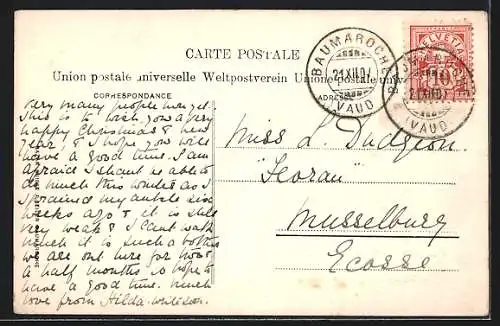 CARTE POSTALE
Union postale universelle Weltpostverein Unione postale univ
CORRESPONDANCE
ADRESSE
BAUMAROCHE
21.XII.07
VAUD
HELVETIA
10
21.XII.07
VAUD
very many people here yet.
This is to wish you a very
happy Christmas & new
Year, & I hope you will
have a good time. I am
afraid I shan't be able to
do much this winter as I
sprained my ankle six
weeks ago & it is still
very weak & I can't walk
much it is such a bother
we are out here for two &
a half months so hope to
have a good time. much
love from Hilda
Miss L. Dudgeon.
Musselburg
Ecosse